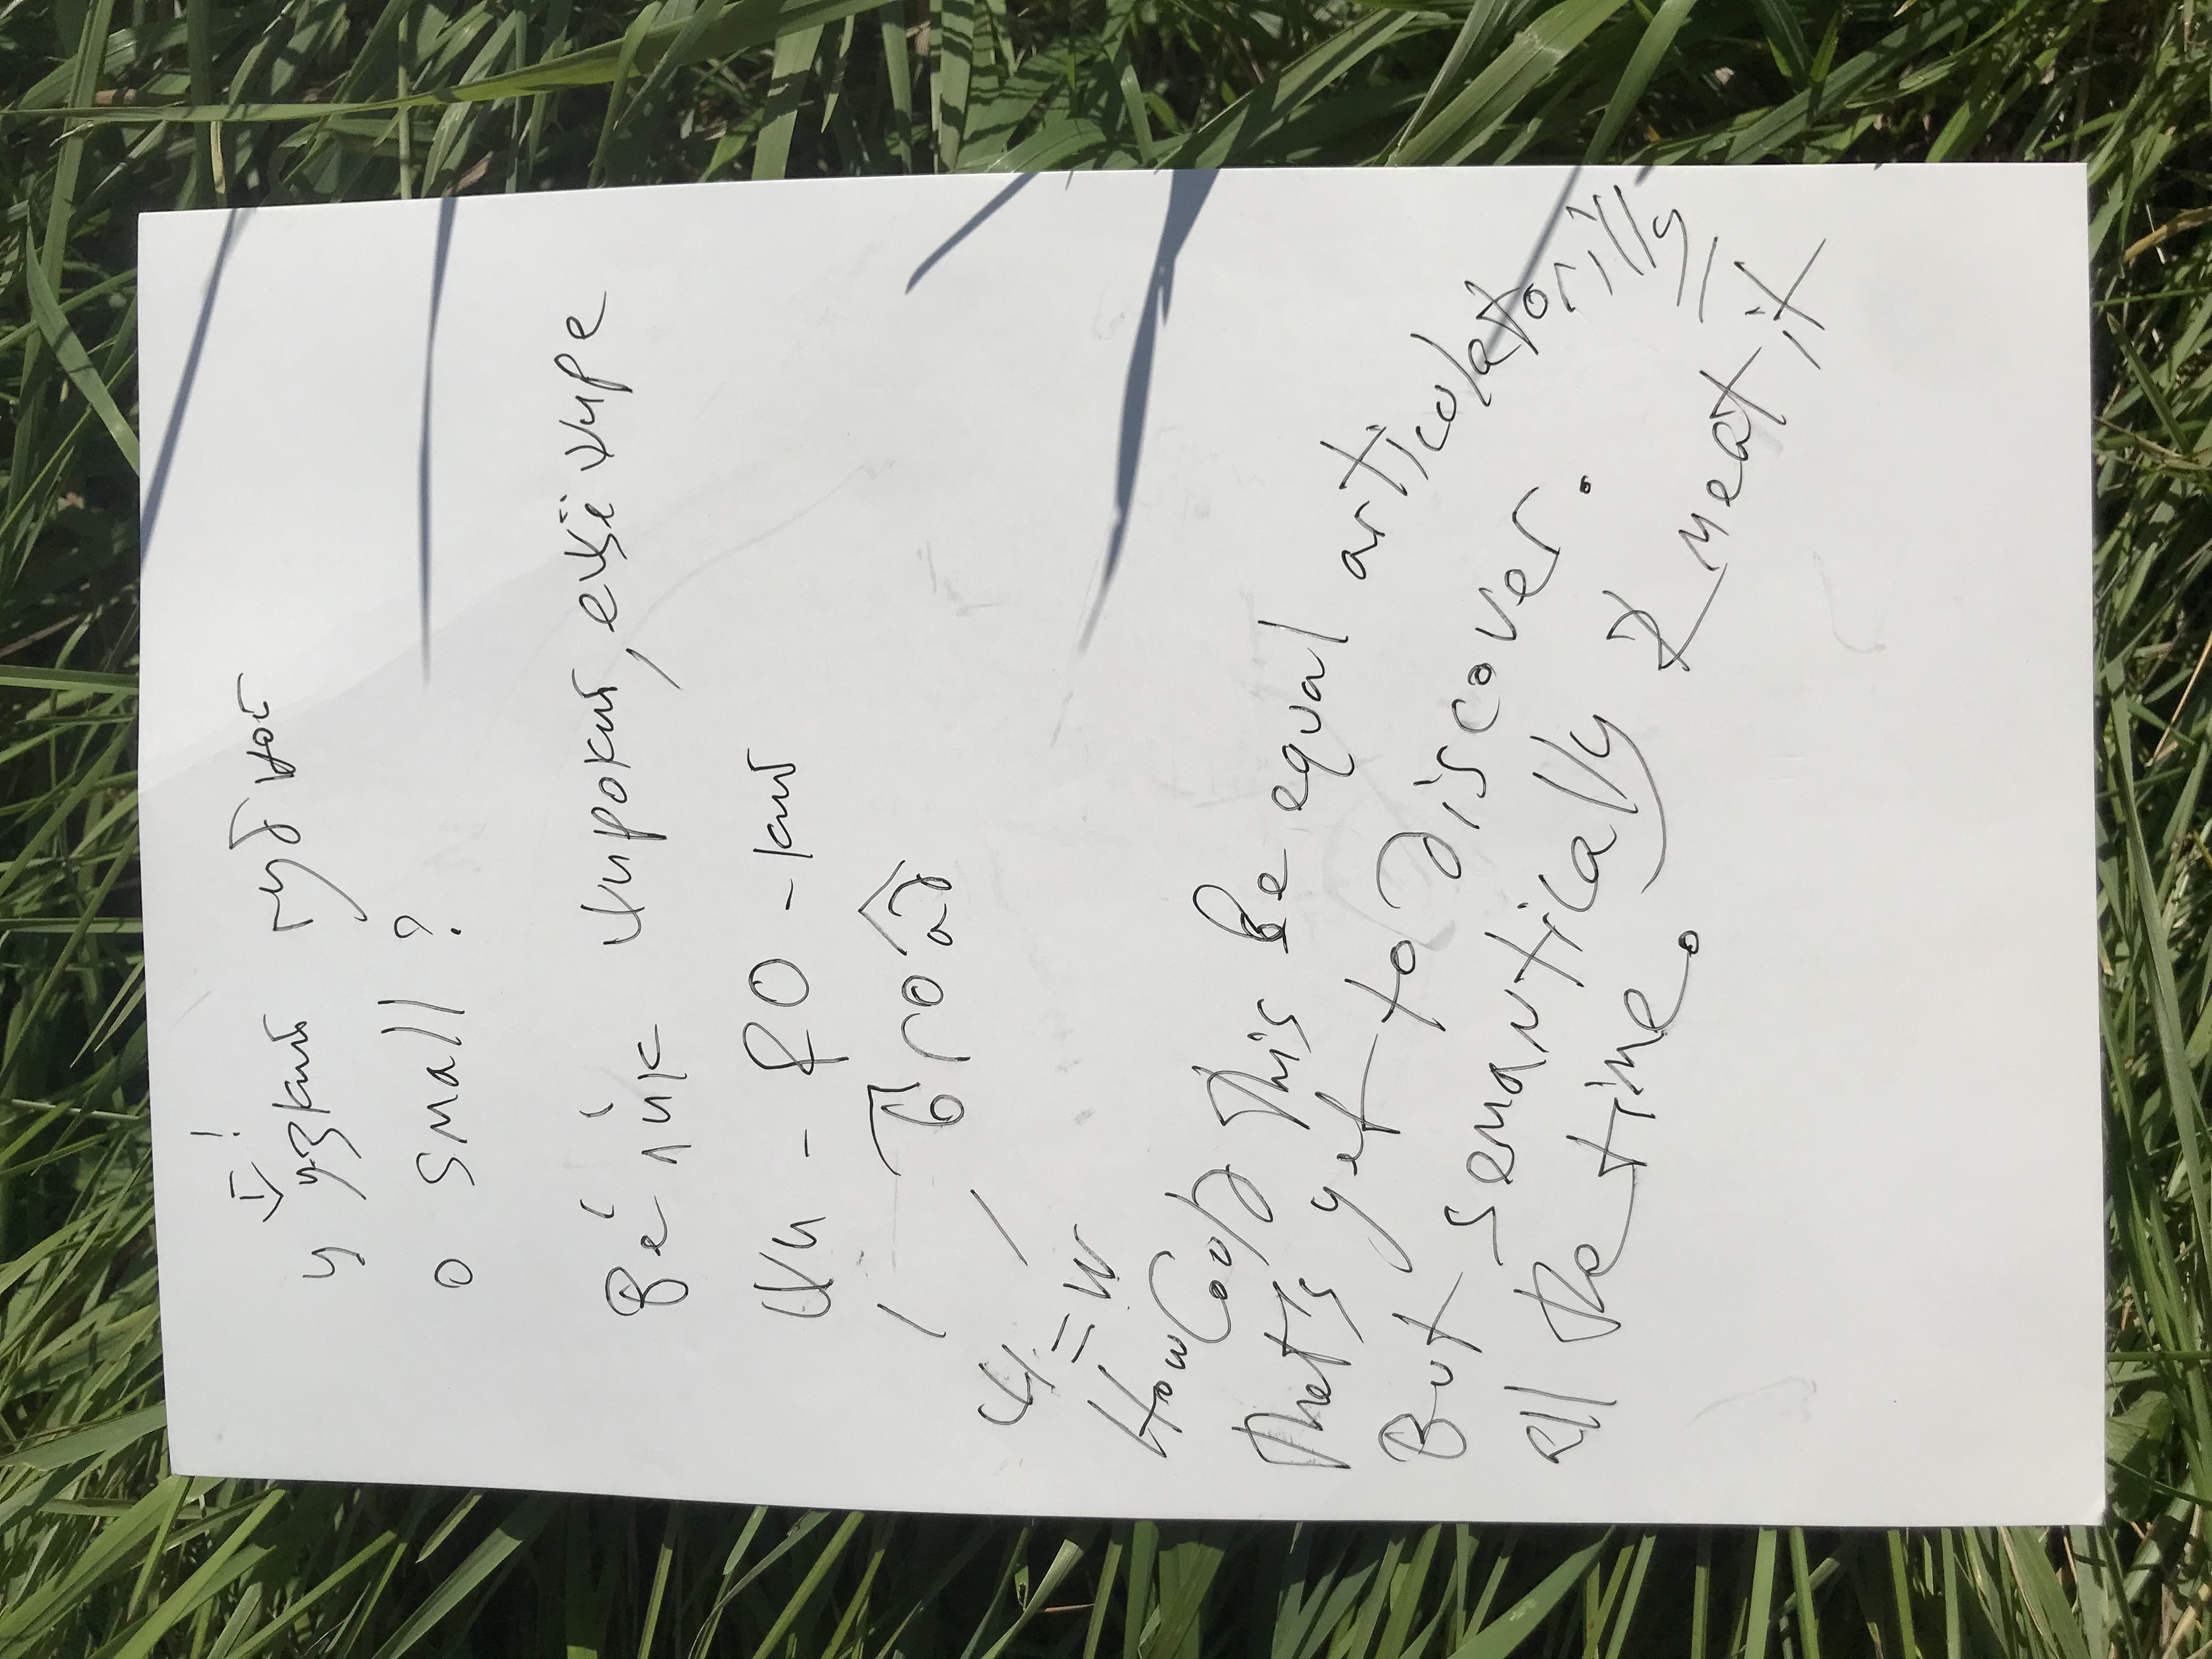 г !
у узкий губной
о small ?
Вели́к широкий, ещё шире
Ши - RO - кий
broad
Ш = W
How Could This Be equal articulatorilly
That's yet to discover.
But semantically I meat it
all the time.